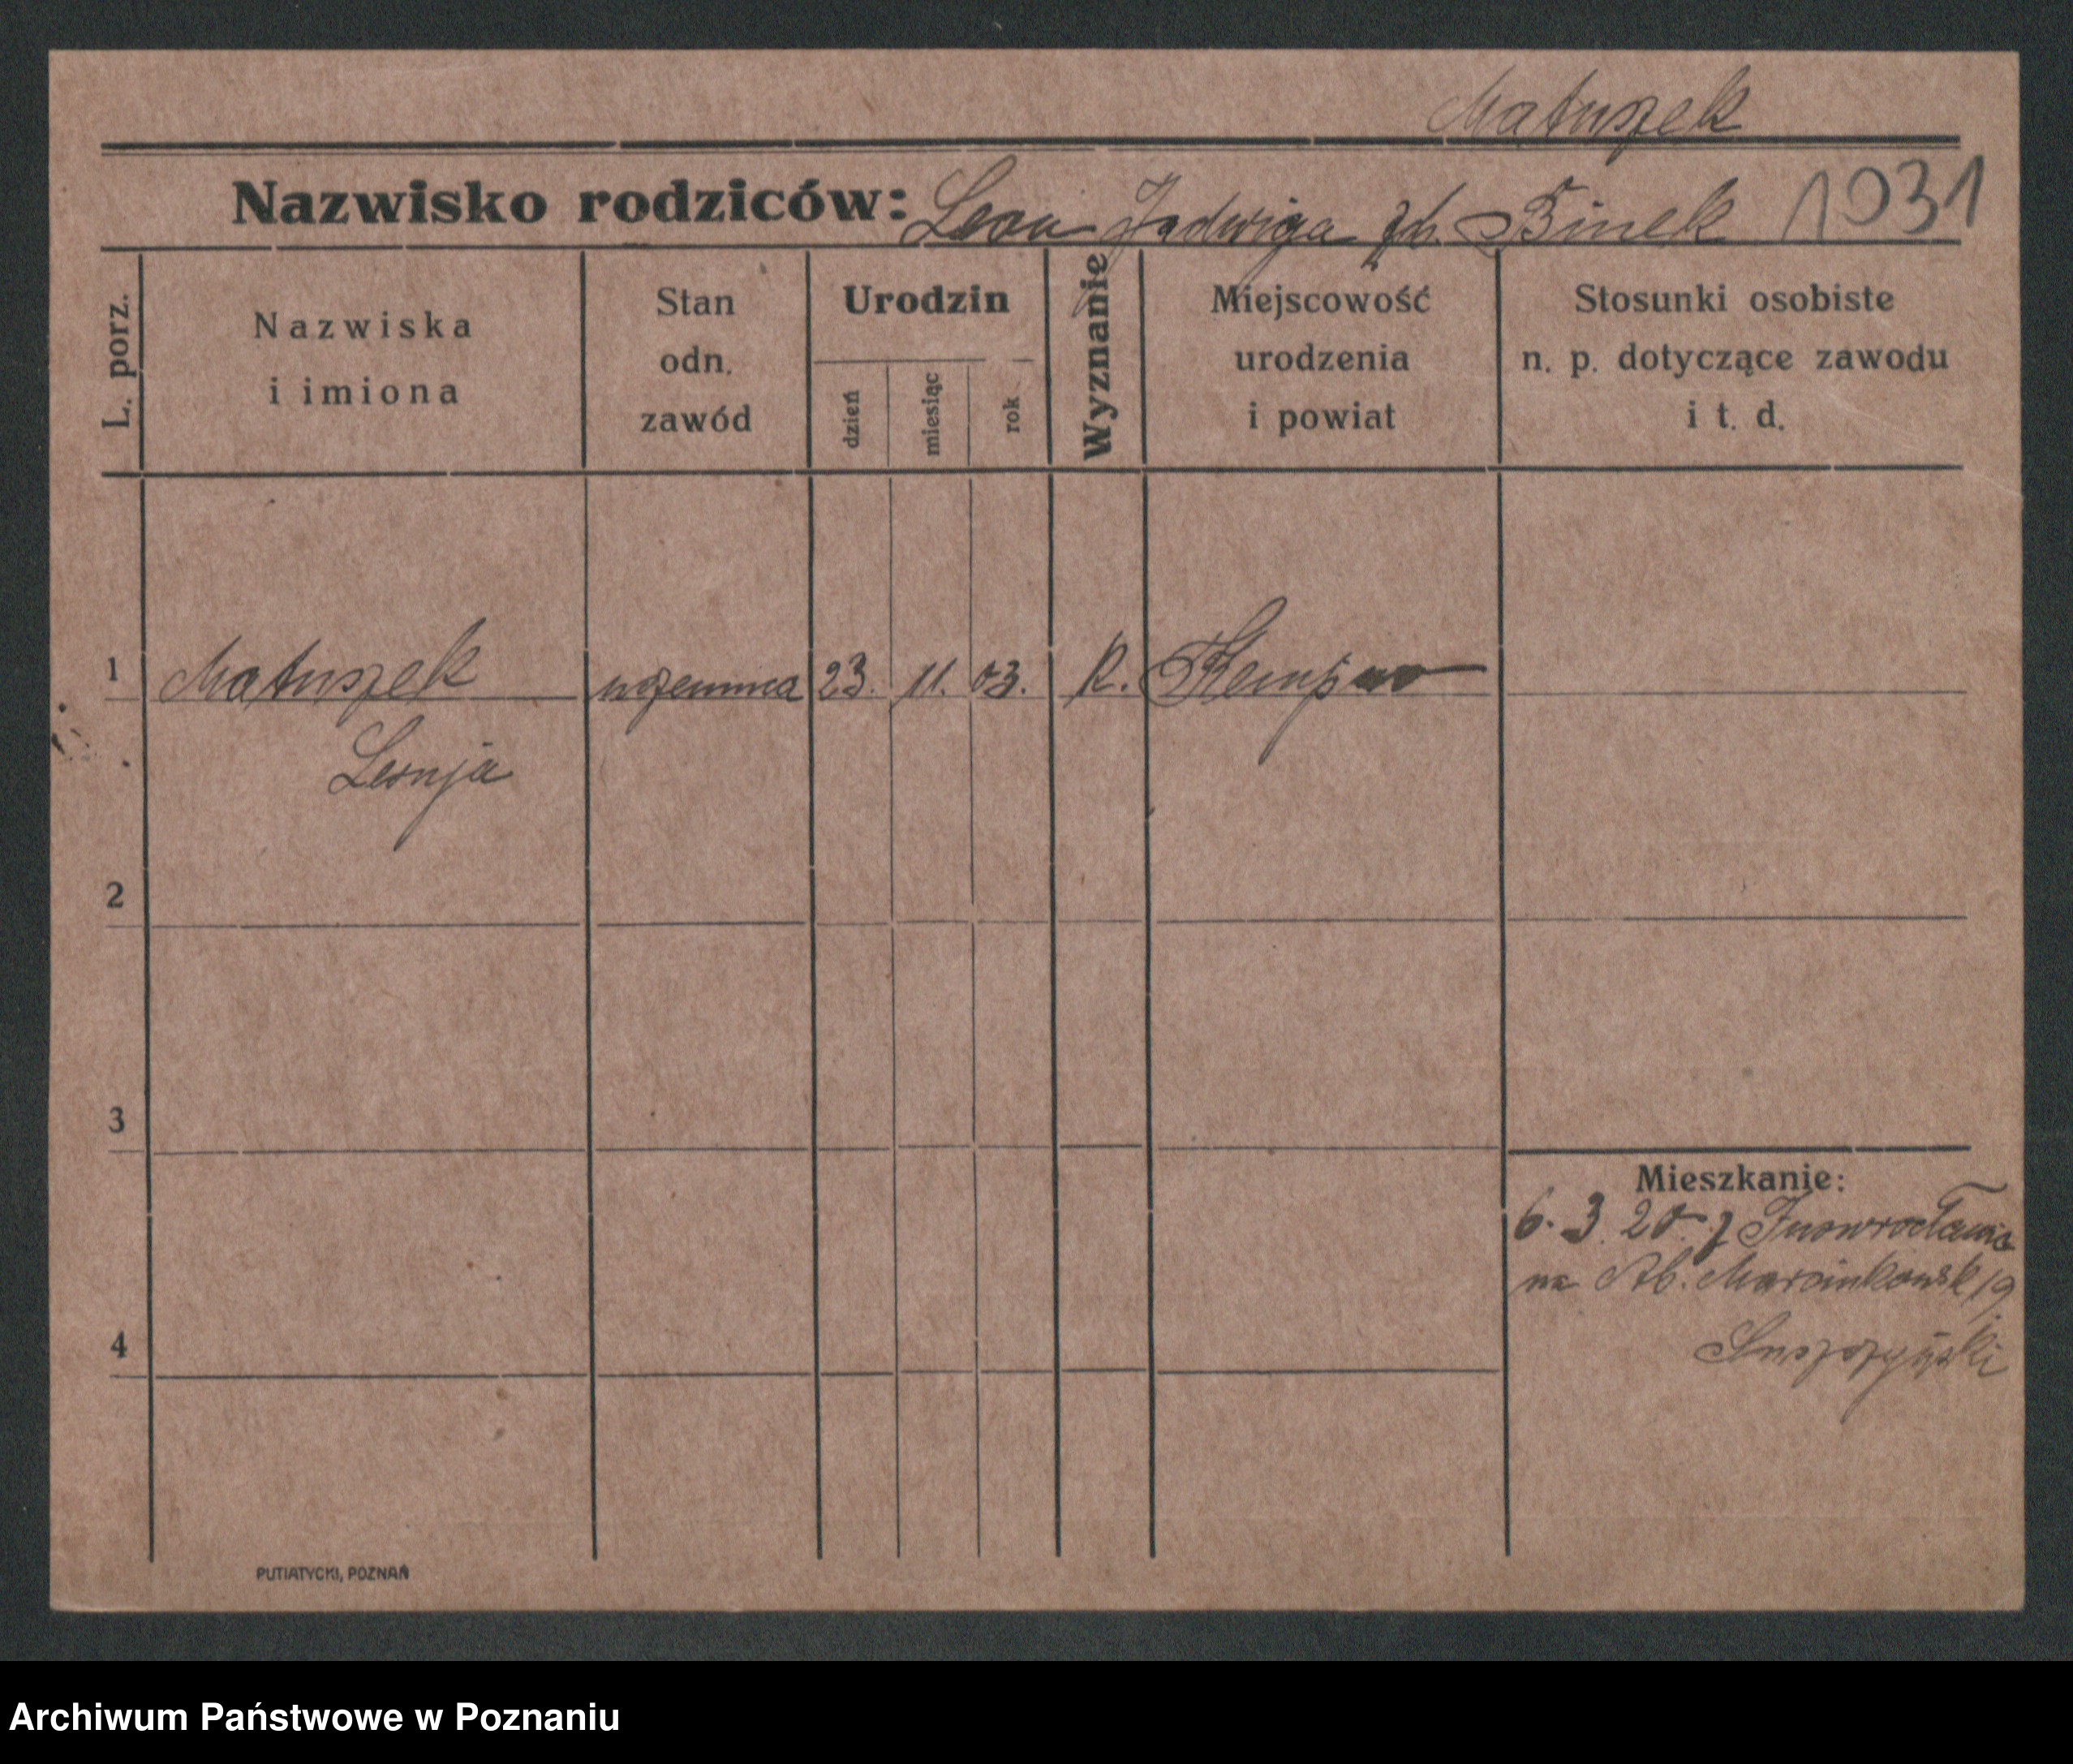 Matuszek
Nazwisko rodziców: Leon Jadwiga zd. Binek 1031
L. porz.
Nazwiska
i imiona
Stan
odn.
zawód
Urodzin
dzień
miesiąc
rok
Wyznanie
Miejscowość
urodzenia
i powiat
Stosunki osobiste
n. p. dotyczące zawodu
i t. d.
1 Matuszek uczennica 23. 11. 03. K. Kempno
Leonja
2
3
Mieszkanie:
6. 3. 20. z Inowrocławia
na Al. Marcinkowsk 19
4
PUTIATYCKI, POZNAŃ
Archiwum Państwowe w Poznaniu